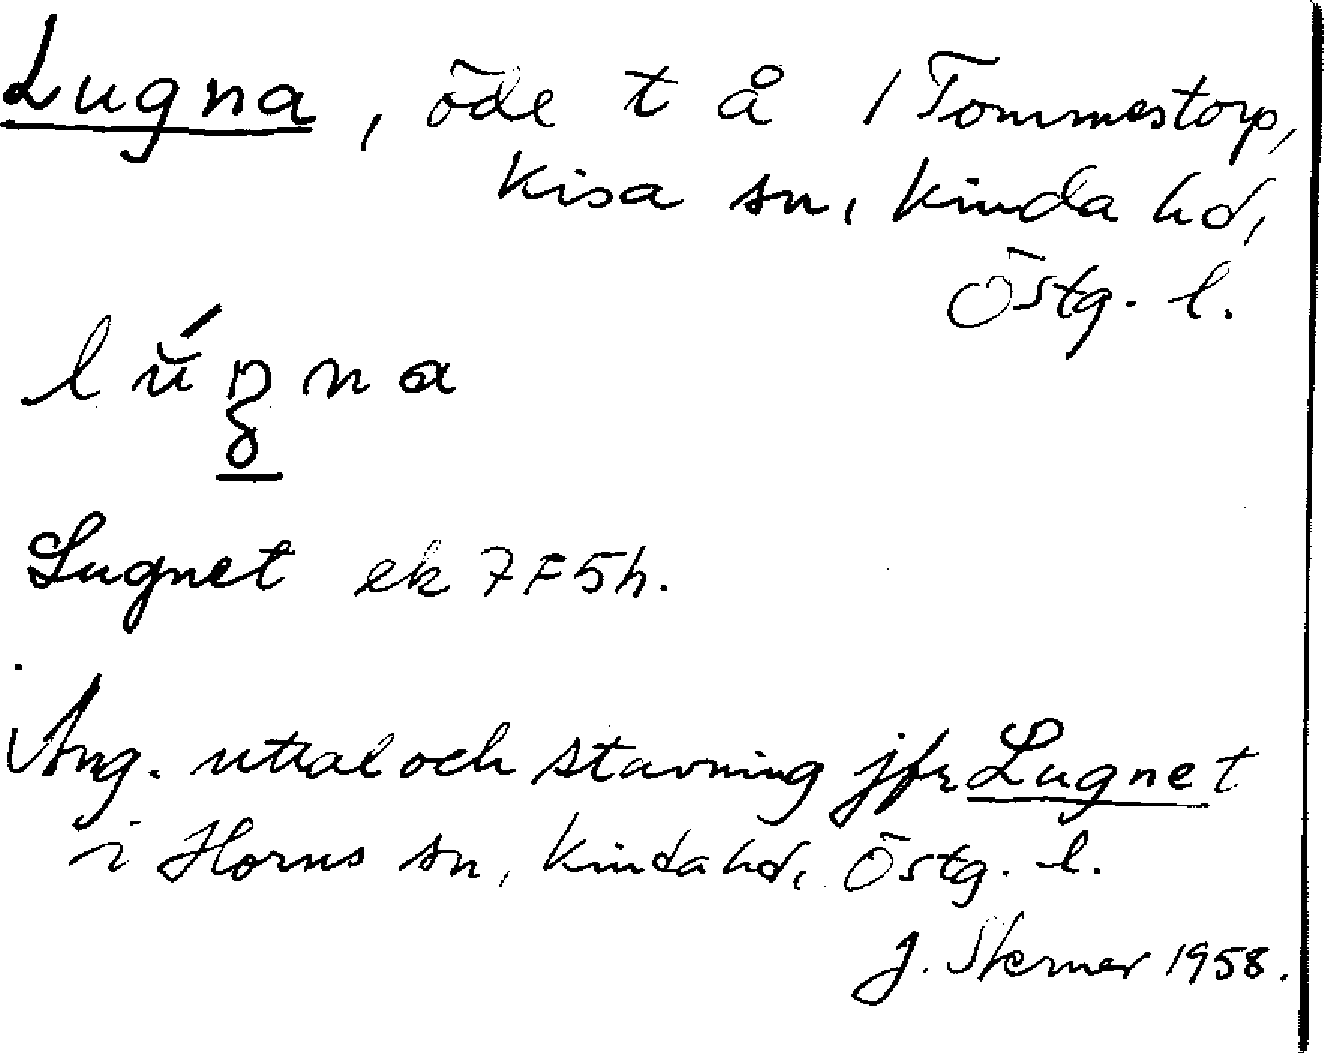 Lugna, öde t å / Tommestorp,
Kisa sn, Kinda hd,
Östg. l.
Lugnet ek 7F5h.
Ang. uttal och stavning jfr Lugnet
i Horns sn, Kinda hd, Östg. l.
J. Sterner 1958.